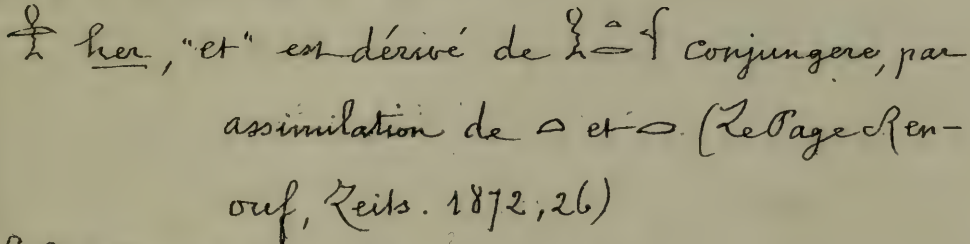 𓎛𓂋 her, "et" est dérivé de 𓎛𓏏𓂋 conjungere, par
assimilation de 𓏏 et 𓂋. (Le Page Ren-
ouf, Zeits. 1872, 26)